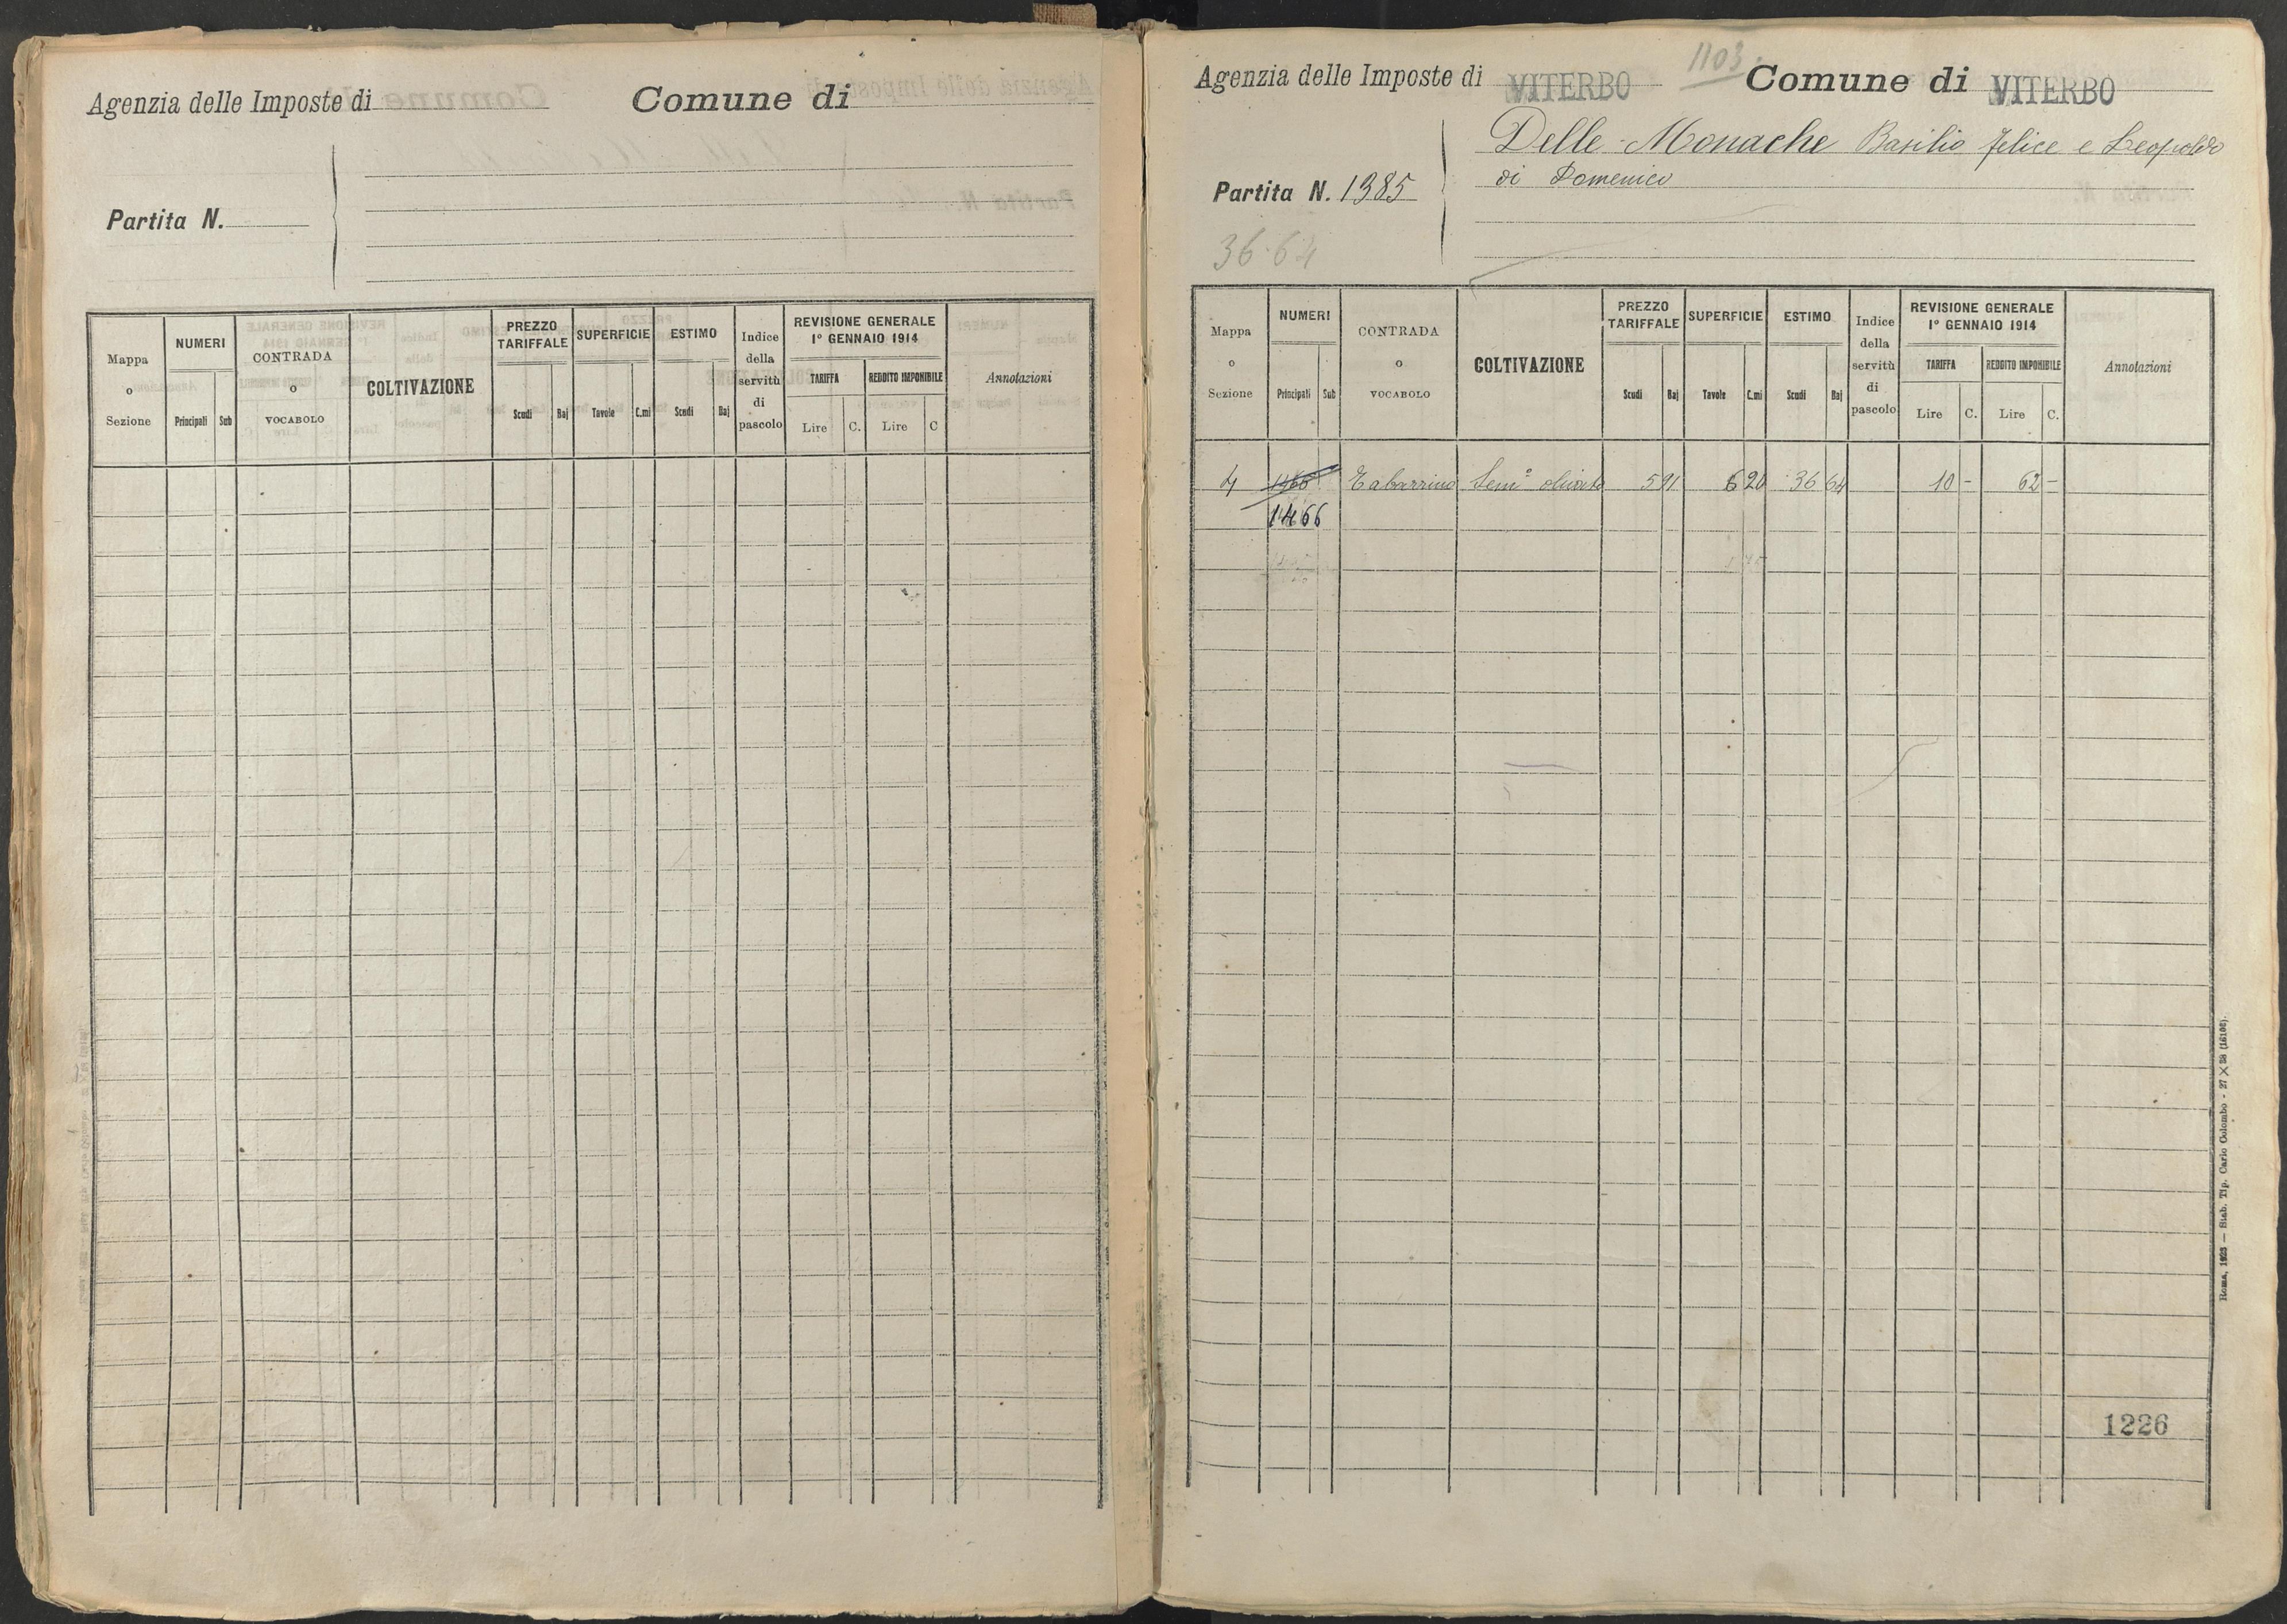 Agenzia delle Imposte di
Comune di
Partita N.
Mappa o Sezione
NUMERI
Principali
Sub
CONTRADA o VOCABOLO
COLTIVAZIONE
PREZZO TARIFFALE
Scudi
Baj
SUPERFICIE
Tavole
C.mi
ESTIMO
Scudi
Baj
Indice della servitù di pascolo
REVISIONE GENERALE
1° GENNAIO 1914
TARIFFA
Lire
C.
REDDITO IMPONIBILE
Lire
C
Annotazioni
1103
Agenzia delle Imposte di VITERBO
Comune di VITERBO
Delle Monache Basilio Felice e Leopoldo
di Domenico
Partita N. 1385
36.64
Mappa o Sezione
NUMERI
Principali
Sub
CONTRADA o VOCABOLO
COLTIVAZIONE
PREZZO TARIFFALE
Scudi
Baj
SUPERFICIE
Tavole
C.mi
ESTIMO
Scudi
Baj
Indice della servitù di pascolo
REVISIONE GENERALE
1° GENNAIO 1914
TARIFFA
Lire
C.
REDDITO IMPONIBILE
Lire
C.
Annotazioni
4 Tabarrino Sem° olivato 5 91 6 20 36 64 10 - 62 -
1466
1226
Roma, 1923 — Stab. Tip. Carlo Colombo - 27 × 38 (16108).